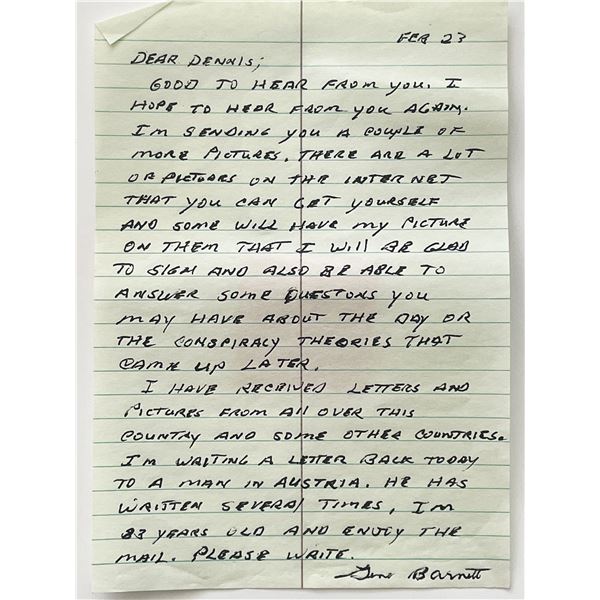 FEB 23
DEAR DENNIS;
GOOD TO HEAR FROM YOU. I
HOPE TO HEAR FROM YOU AGAIN.
I'M SENDING YOU A COUPLE OF
MORE PICTURES. THERE ARE A LOT
OF PICTUARS ON THE INTERNET
THAT YOU CAN GET YOURSELF
AND SOME WILL HAVE MY PICTURE
ON THEM THAT I WILL BE GLAD
TO SIGN AND ALSO BE ABLE TO
ANSWER SOME QUESTONS YOU
MAY HAVE ABOUT THE DAY OR
THE CONSPIRACY THEORIES THAT
CAME UP LATER.
I HAVE RECEIVED LETTERS AND
PICTURES FROM ALL OVER THIS
COUNTRY AND SOME OTHER COUNTRIES.
I'M WRITING A LETTER BACK TODAY
TO A MAN IN AUSTRIA. HE HAS
WRITTEN SEVERAL TIMES, I'M
83 YEARS OLD AND ENJOY THE
MAIL. PLEASE WRITE.
Gene Barnett